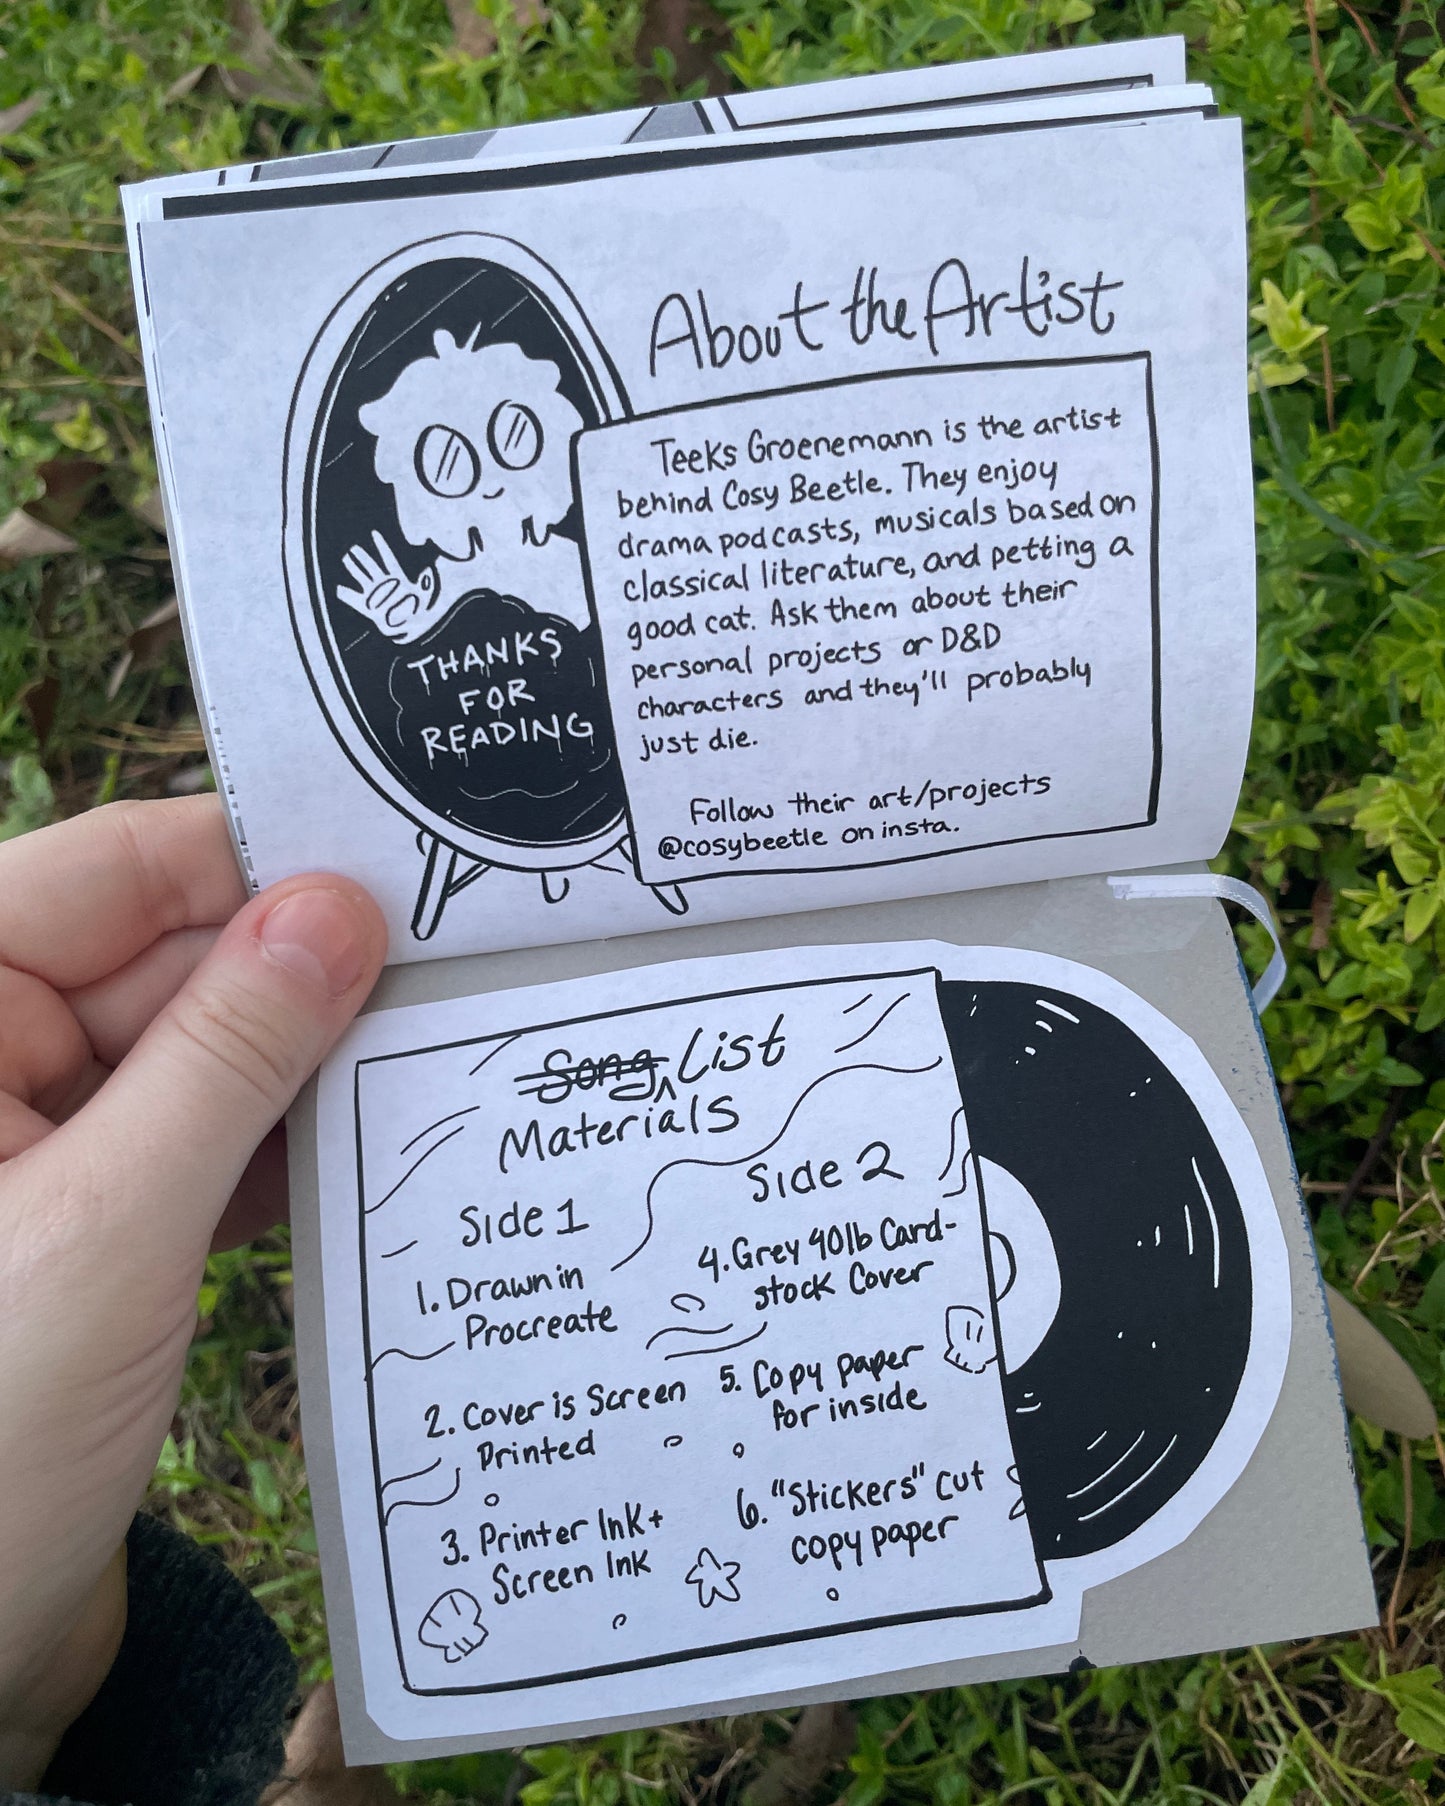 About the Artist
Teeks Groenemann is the artist
behind Cosy Beetle. They enjoy
drama podcasts, musicals based on
classical literature, and petting a
good cat. Ask them about their
personal projects or D&D
characters and they'll probably
just die.
Follow their art/projects
@cosybeetle on insta.
THANKS
FOR
READING
Song List
Materials
Side 1
1. Drawn in
Procreate
2. Cover is Screen
Printed
3. Printer Ink +
Screen Ink
Side 2
4. Grey 40lb Card-
stock Cover
5. Copy paper
for inside
6. "Stickers" cut
copy paper